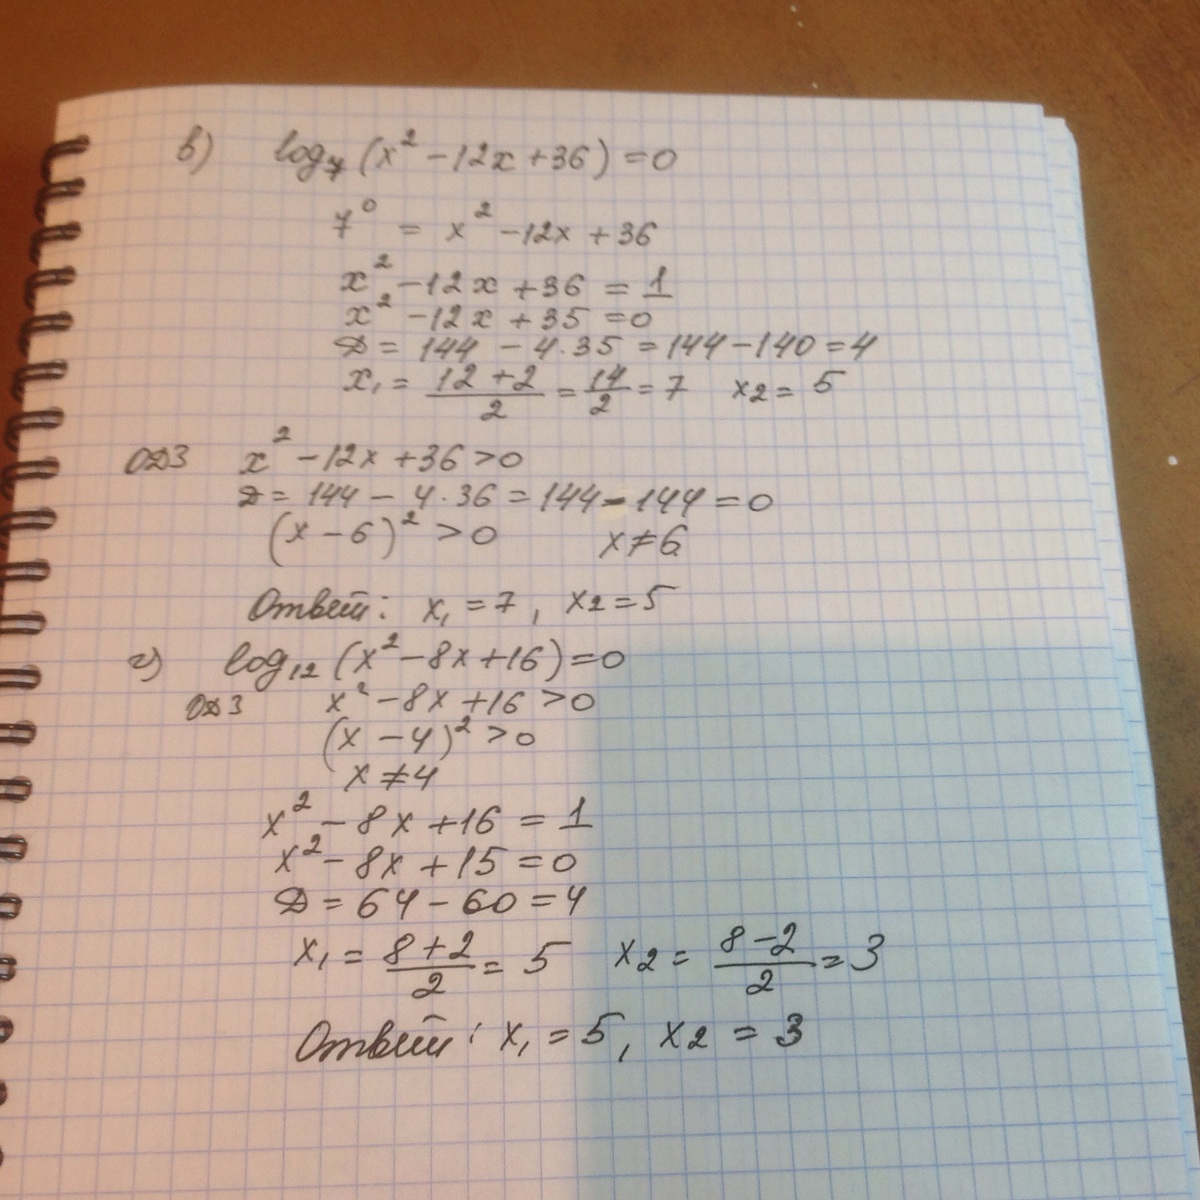 в) log₇(x² - 12x + 36) = 0
7⁰ = x² - 12x + 36
x² - 12x + 36 = 1
x² - 12x + 35 = 0
Д = 144 - 4·35 = 144 - 140 = 4
x₁ = (12 + 2)/2 = 14/2 = 7 x₂ = 5
ОДЗ x² - 12x + 36 > 0
Д = 144 - 4·36 = 144 - 144 = 0
(x - 6)² > 0 x ≠ 6
Ответ: x₁ = 7, x₂ = 5
г) log₁₂(x² - 8x + 16) = 0
ОДЗ x² - 8x + 16 > 0
(x - 4)² > 0
x ≠ 4
x² - 8x + 16 = 1
x² - 8x + 15 = 0
Д = 64 - 60 = 4
x₁ = (8 + 2)/2 = 5 x₂ = (8 - 2)/2 = 3
Ответ: x₁ = 5, x₂ = 3